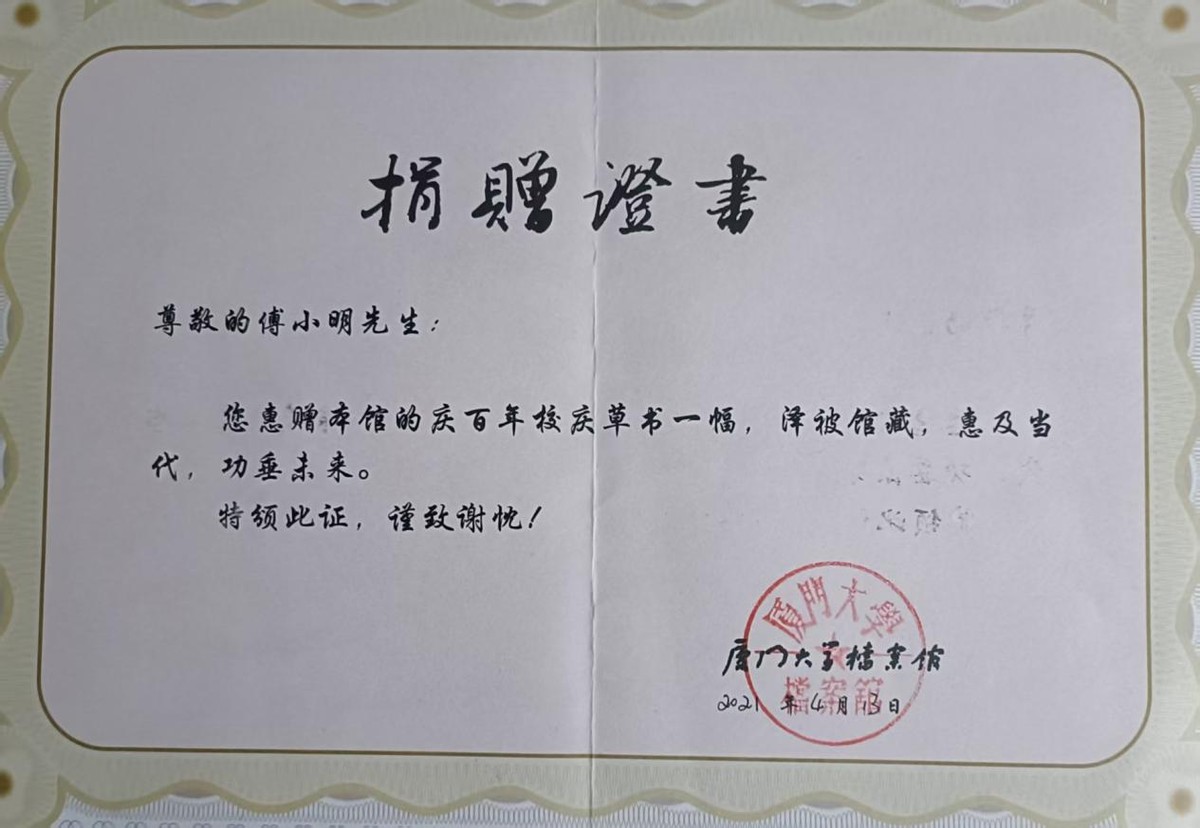 捐贈證書
尊敬的傅小明先生：
您惠赠本馆的庆百年校庆草书一幅，泽被馆藏，惠及当
代，功垂未来。
特颁此证，谨致谢忱！
厦门大學
厦门大学档案馆
檔案館
2021年4月13日